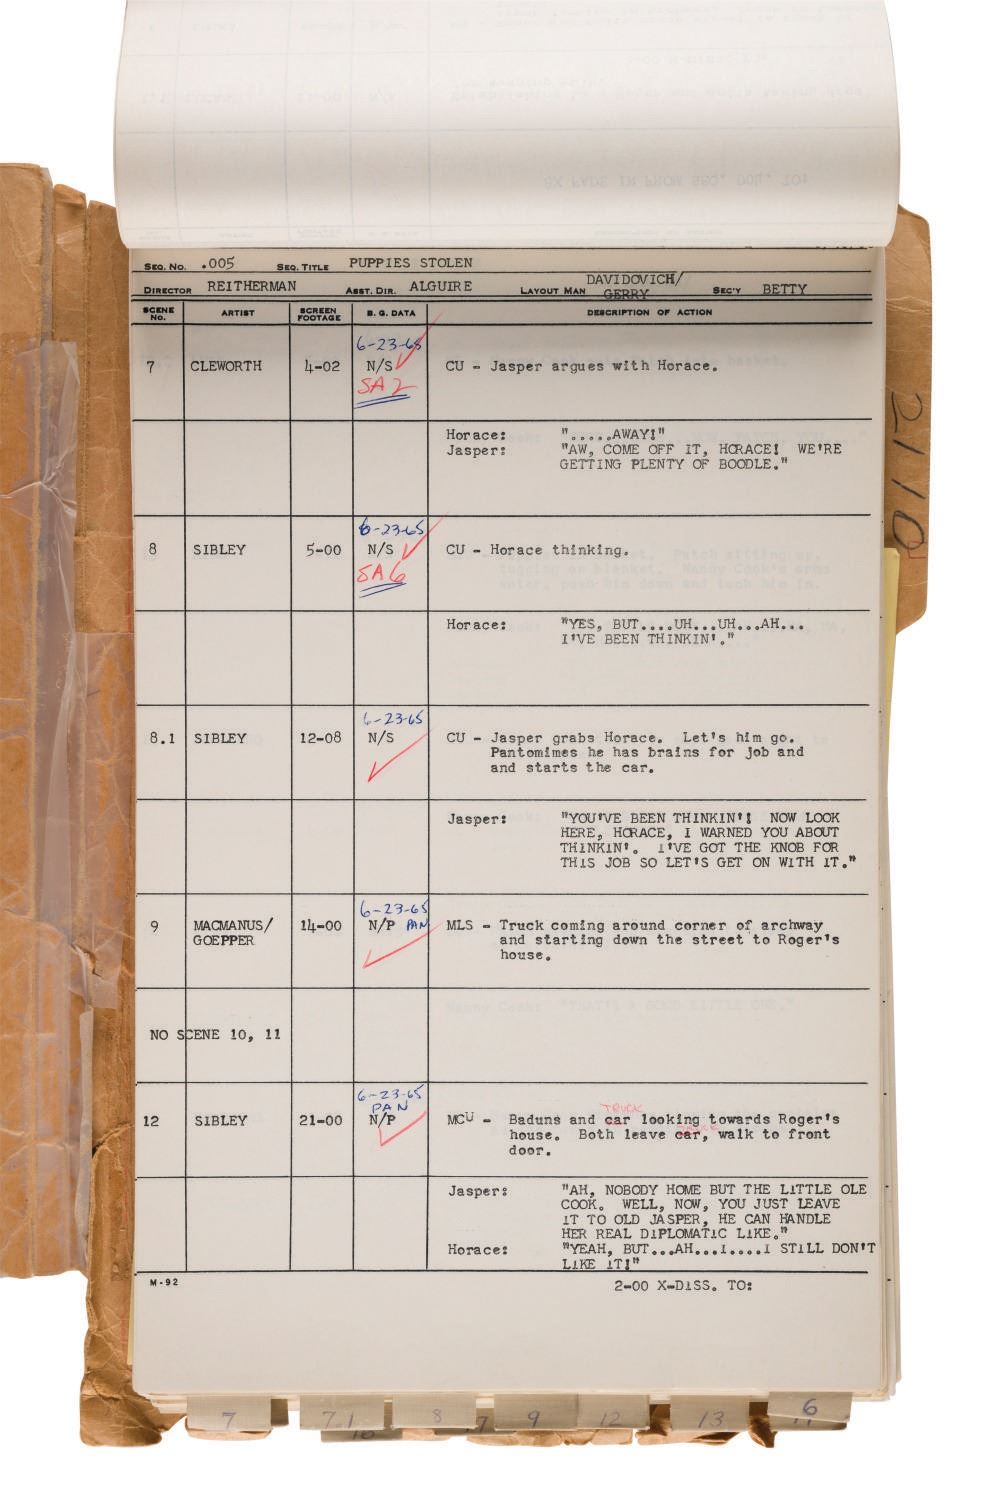 SEQ. NO. .005 SEQ. TITLE PUPPIES STOLEN
DIRECTOR REITHERMAN ASST. DIR. ALGUIRE LAYOUT MAN DAVIDOVICH/ GERRY SEC'Y BETTY
SCENE NO. ARTIST SCREEN FOOTAGE B. G. DATA DESCRIPTION OF ACTION
6-23-65
7 CLEWORTH 4-02 N/S CU - Jasper argues with Horace.
SA 2
Horace: ".....AWAY!"
Jasper: "AW, COME OFF IT, HORACE! WE'RE
GETTING PLENTY OF BOODLE."
6-23-65
8 SIBLEY 5-00 N/S CU - Horace thinking.
SA 6
Horace: "YES, BUT....UH...UH...AH...
I'VE BEEN THINKIN'."
6-23-65
8.1 SIBLEY 12-08 N/S CU - Jasper grabs Horace. Let's him go.
Pantomimes he has brains for job and
and starts the car.
Jasper: "YOU'VE BEEN THINKIN'! NOW LOOK
HERE, HORACE, I WARNED YOU ABOUT
THINKIN'. I'VE GOT THE KNOB FOR
THIS JOB SO LET'S GET ON WITH IT."
6-23-65
9 MACMANUS/ 14-00 N/P PAN MLS - Truck coming around corner of archway
GOEPPER and starting down the street to Roger's
house.
NO SCENE 10, 11
6-23-65
PAN TRUCK
12 SIBLEY 21-00 N/P MCU - Baduns and car looking towards Roger's
house. Both leave car, walk to front
door.
Jasper: "AH, NOBODY HOME BUT THE LITTLE OLE
COOK. WELL, NOW, YOU JUST LEAVE
IT TO OLD JASPER, HE CAN HANDLE
HER REAL DIPLOMATIC LIKE."
Horace: "YEAH, BUT...AH...I.....I STILL DON'T
LIKE IT!"
M-92
2-00 X-DISS. TO:
2110
7 7.1 8 9 12 13 6